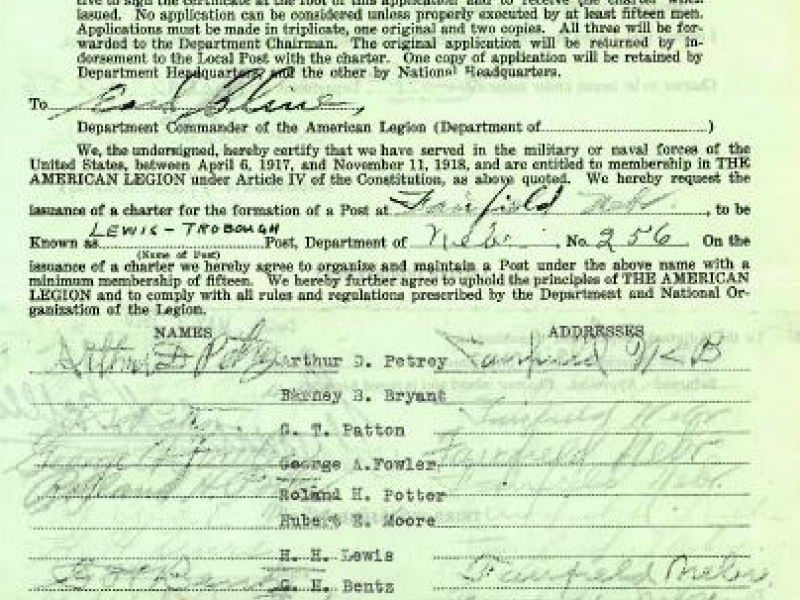 tive to sign the certificate at the foot of this application and to receive the charter when
issued. No application can be considered unless properly executed by at least fifteen men.
Applications must be made in triplicate, one original and two copies. All three will be for-
warded to the Department Chairman. The original application will be returned by in-
dorsement to the Local Post with the charter. One copy of application will be retained by
Department Headquarters and the other by National Headquarters.
To Earl Cline,
Department Commander of the American Legion (Department of )
We, the undersigned, hereby certify that we have served in the military or naval forces of the
United States, between April 6, 1917, and November 11, 1918, and are entitled to membership in THE
AMERICAN LEGION under Article IV of the Constitution, as above quoted. We hereby request the
issuance of a charter for the formation of a Post at Fairfield Nebr. , to be
Known as LEWIS-TROBOUGH Post, Department of Nebr. No. 256 On the
(Name of Post)
issuance of a charter we hereby agree to organize and maintain a Post under the above name with a
minimum membership of fifteen. We hereby further agree to uphold the principles of THE AMERICAN
LEGION and to comply with all rules and regulations prescribed by the Department and National Or-
ganization of the Legion.
NAMES ADDRESSES
Arthur D Petrey Arthur D. Petrey Fairfield NEB
Barney B. Bryant
G. T. Patton Fairfield Nebr
George A. Fowler George A.Fowler Fairfield Nebr.
Roland H. Potter
Hubert E. Moore
H. H. Lewis
G. H. Bentz Fairfield Nebr.